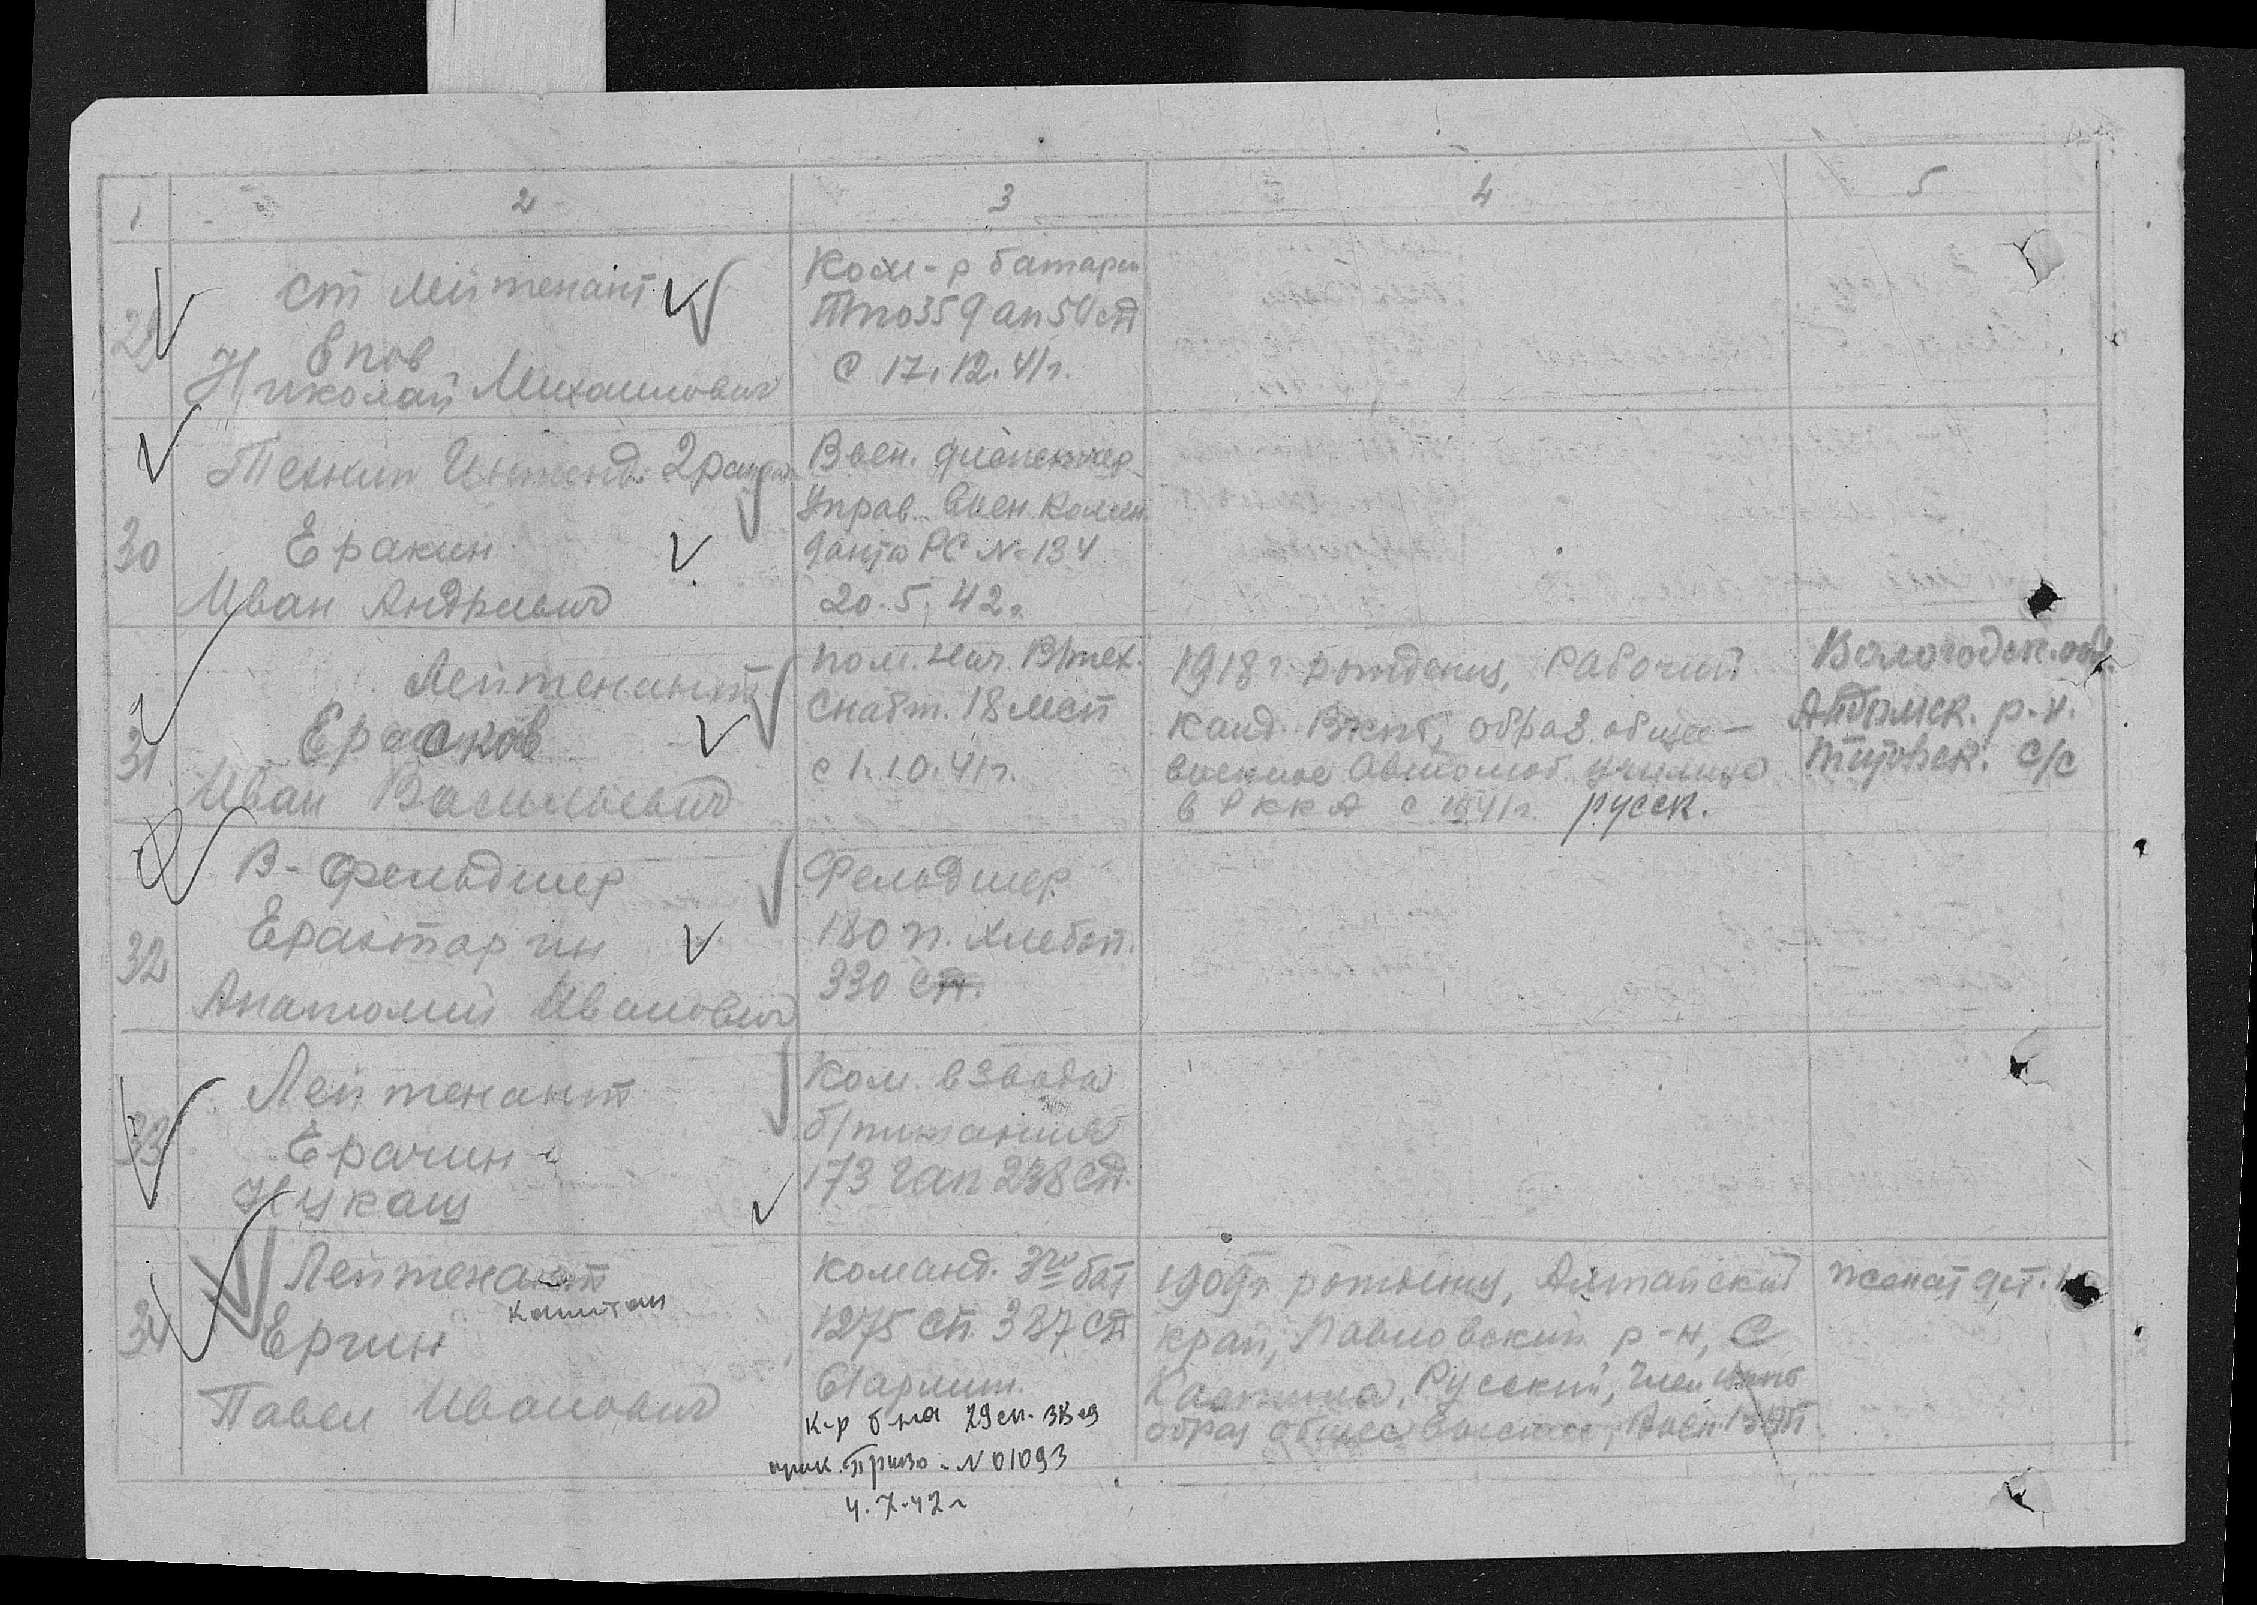 1 2 3 4 5
29
ст лейтенант
Епов
Николай Михаилович
Ком-р батареи
ПТО 359 ап 50 сд
с 17.12.41г.
30
Техник Интенд. 2 ранга
Еракин
Иван Андреевич
Воен.
Управ. Воен Комен
данта РС № 134
20.5.42г
31
Лейтенант
Ерасков
Иван Васильевич
пом. нач. В/тех.
Снабж. 18 мсп
с 1.10.41г.
1918 г рождения, Рабочий
канд. Вкпб, образ. обще-
военное Автомоб. училище
в РККА с 1941г. русск.
Вологодск. обл.
р-н.
с/с
32
В-фельдшер
Ерахторин
Анатолий Иванович
Фельдшер
180 п. хлебоп.
330 сд.
33
Лейтенант
Ерачин
Нукаш
Ком взвода
б/питания
173 гап 238 сд.
34
Лейтенант
капитан
Ергин
Павел Иванович
команд. 3го бат
1275 сп 337 сд
Старлит.
к-р б-на 29 сп. 38 сд
прик. ПриВО - N 01093
4.X.42г
1909г рождения, Алтайский
край, Павловский р-н, С
Русский, Член
образ общее Воен.
женат дет.